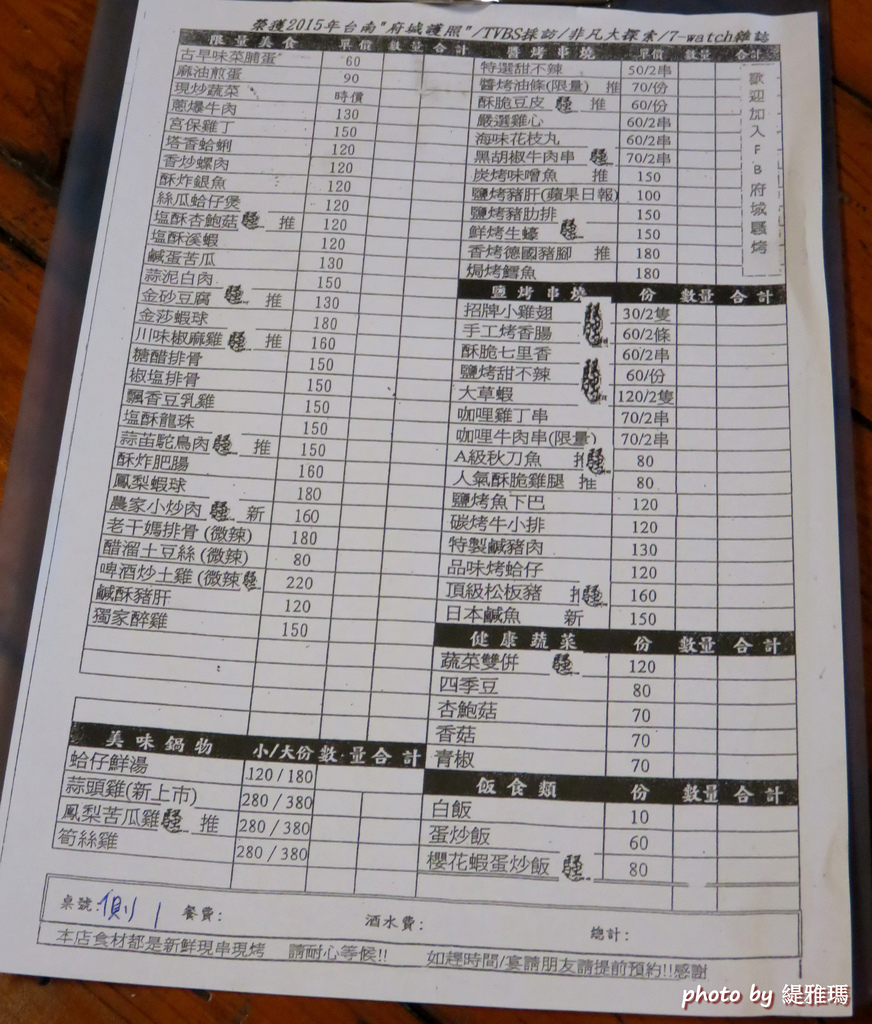 榮獲2015年台南"府城護照"/TVBS採訪/非凡大探索/7-watch雜誌
限量美食 單價 數量 合計
古早味菜脯蛋 60
麻油煎蛋 90
現炒蔬菜 時價
蔥爆牛肉 130
宮保雞丁 150
塔香蛤蜊 120
香炒螺肉 120
酥炸銀魚 120
絲瓜蛤仔煲 120
塩酥杏鮑菇 騷 推 120
塩酥溪蝦 120
鹹蛋苦瓜 130
蒜泥白肉 150
金砂豆腐 騷 推 130
金莎蝦球 180
川味椒麻雞 騷 推 160
糖醋排骨 150
椒塩排骨 150
飄香豆乳雞 150
塩酥龍珠 150
蒜苗駝鳥肉 騷 推 150
酥炸肥腸 160
鳳梨蝦球 180
農家小炒肉 騷 新 160
老干媽排骨 (微辣) 180
醋溜土豆絲 (微辣) 80
啤酒炒土雞 (微辣 騷 220
鹹酥豬肝 120
獨家醉雞 150
美味鍋物 小/大份 數量 合計
蛤仔鮮湯 120/180
蒜頭雞(新上市) 280/380
鳳梨苦瓜雞 騷 推 280/380
筍絲雞 280/380
醬烤串燒 單價 數量 合計
特選甜不辣 50/2串
醬烤油條(限量) 推 70/份
酥脆豆皮 騷 推 60/份
嚴選雞心 60/2串
海味花枝丸 60/2串
黑胡椒牛肉串 騷 70/2串
炭烤味噌魚 推 150
鹽烤豬肝(蘋果日報) 100
鹽烤豬肋排 150
鮮烤生蠔 騷 150
香烤德國豬腳 推 180
焗烤鱈魚 180
歡迎加入FB府城騷烤
鹽烤串燒 份 數量 合計
招牌小雞翅 騷 30/2隻
手工烤香腸 騷 60/2條
酥脆七里香 60/2串
鹽烤甜不辣 騷 60/份
大草蝦 騷 120/2隻
咖哩雞丁串 70/2串
咖哩牛肉串(限量) 70/2串
A級秋刀魚 推 騷 80
人氣酥脆雞腿 推 80
鹽烤魚下巴 120
碳烤牛小排 120
特製鹹豬肉 130
品味烤蛤仔 120
頂級松板豬 推 騷 160
日本鹹魚 新 150
健康蔬菜 份 數量 合計
蔬菜雙併 騷 120
四季豆 80
杏鮑菇 70
香菇 70
青椒 70
飯食類 份 數量 合計
白飯 10
蛋炒飯 60
櫻花蝦蛋炒飯 騷 80
桌號: 側 1 餐費: 酒水費: 總計:
本店食材都是新鮮現串現烤 請耐心等候!! 如趕時間/宴請朋友請提前預約!!感謝
photo by 緹雅瑪